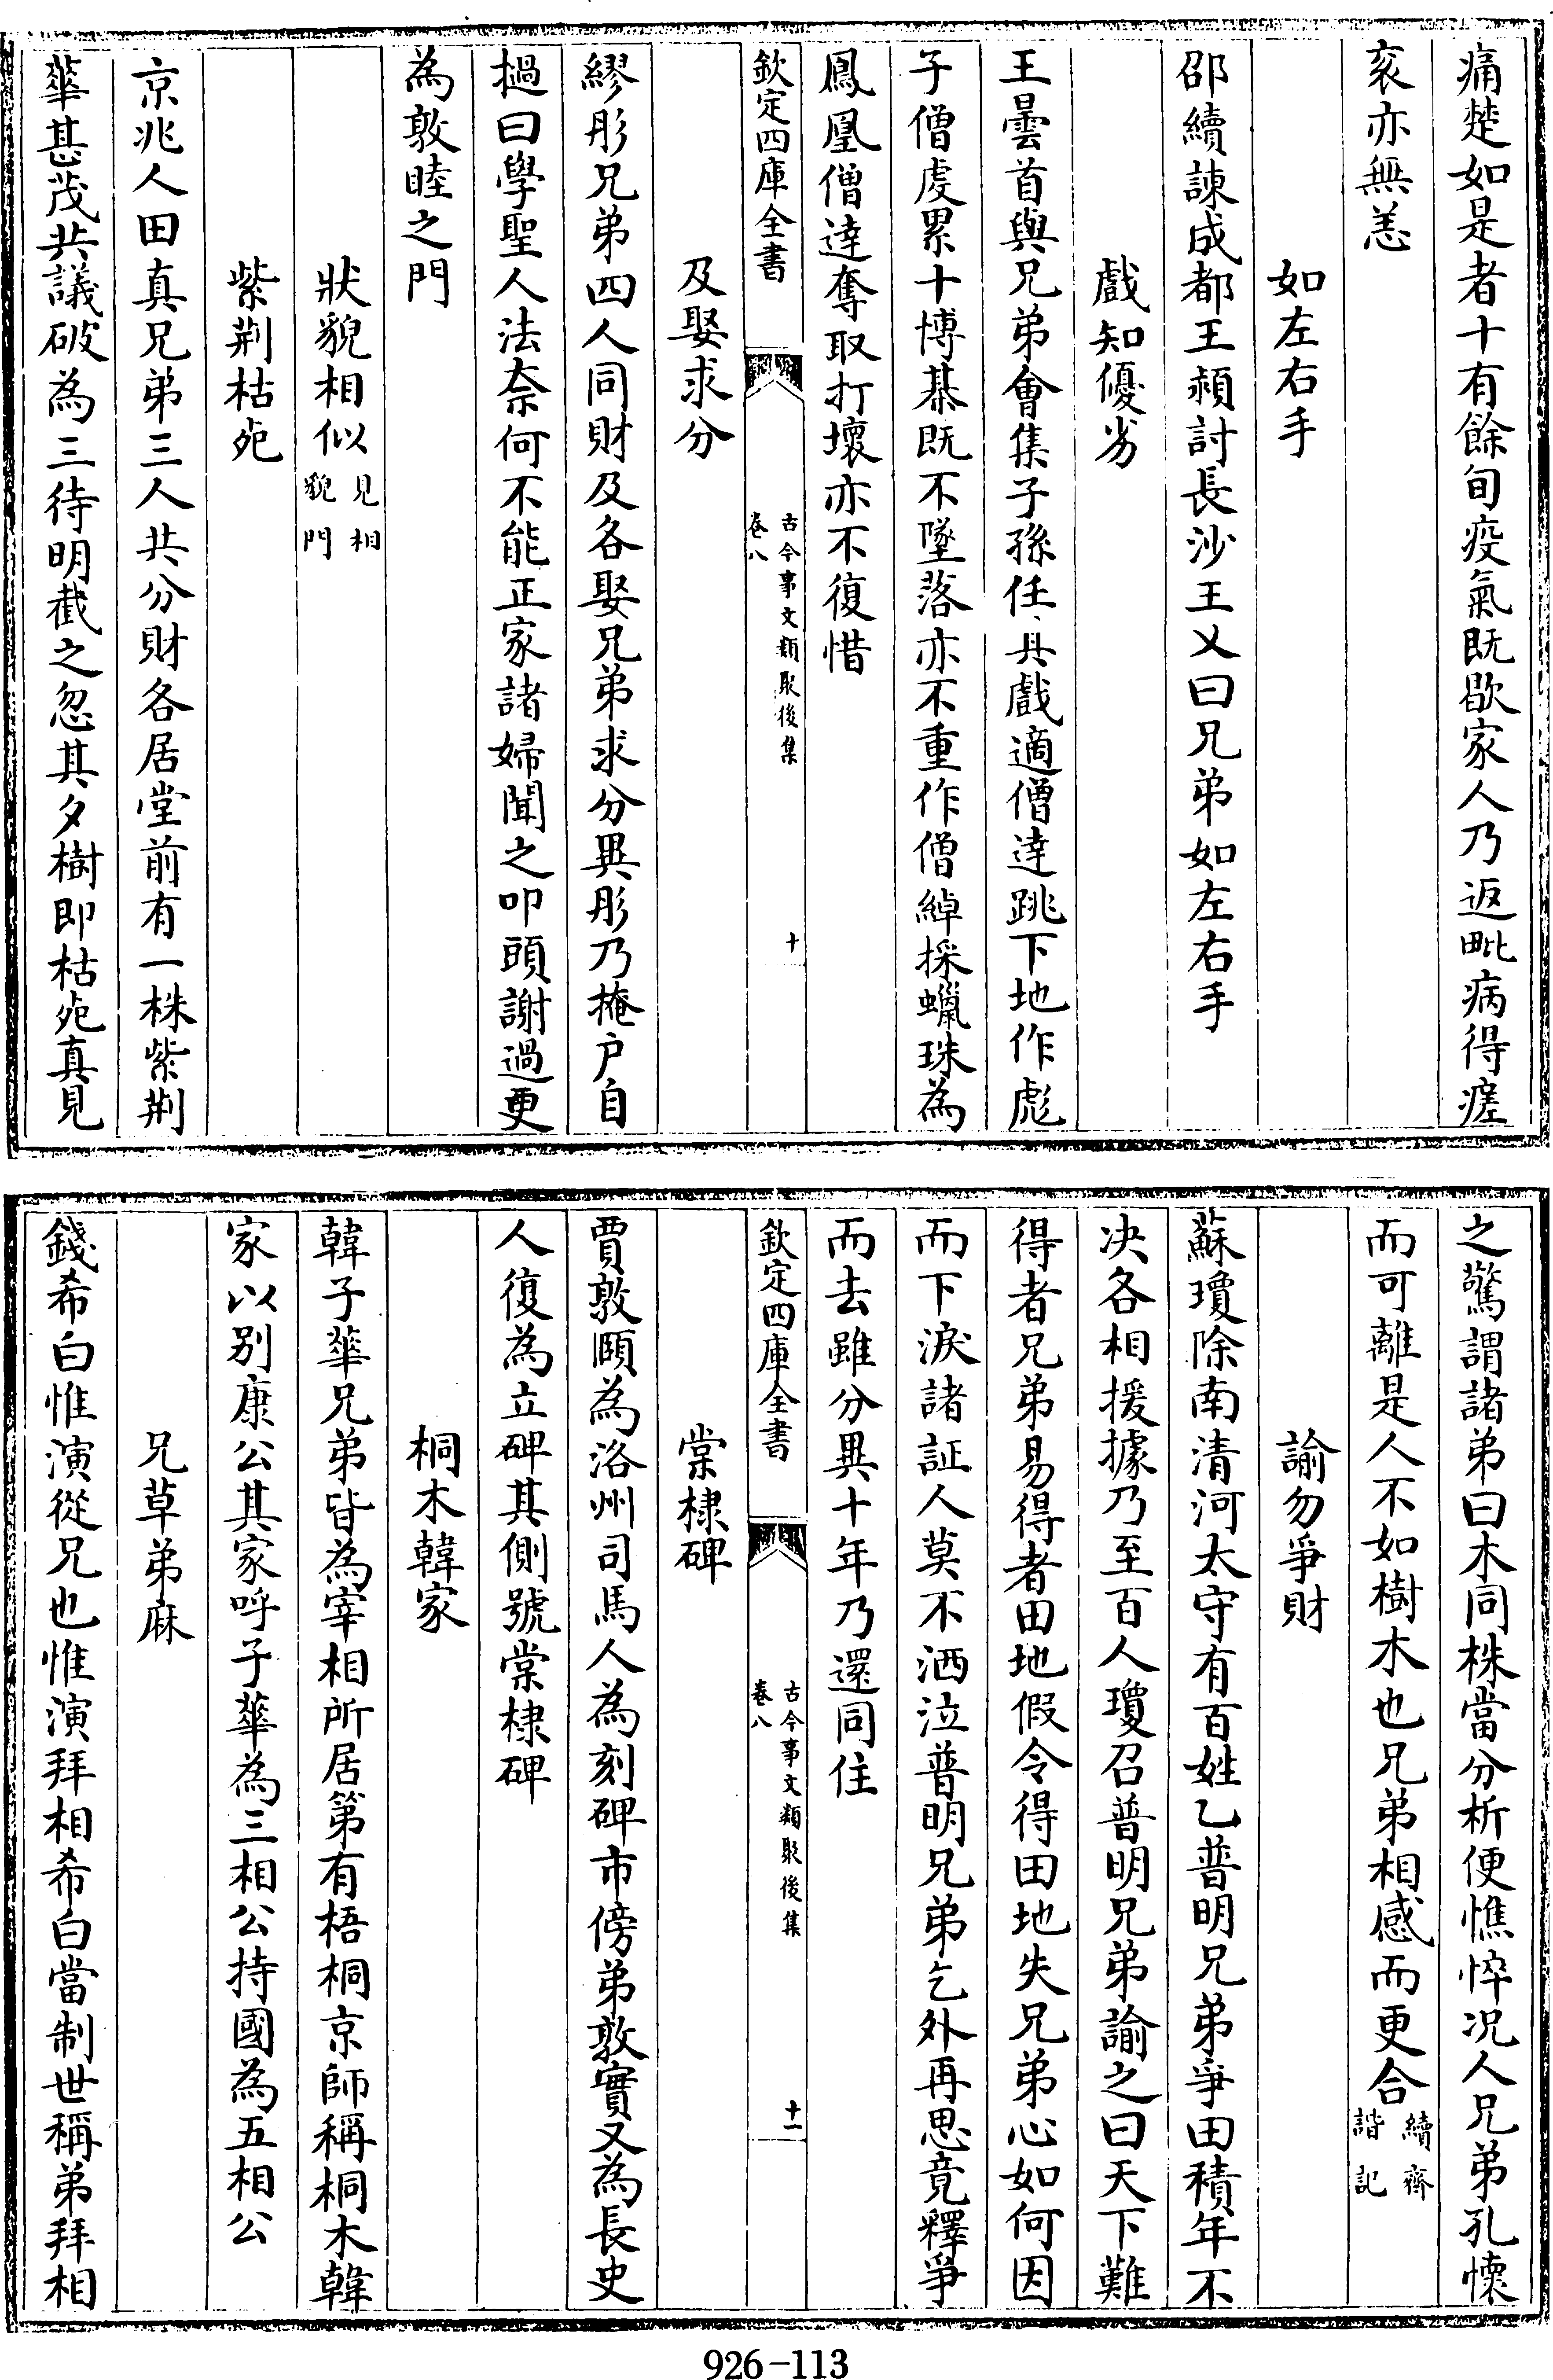 痛楚如是者十有餘旬疫氣既歇家人乃返毗病得瘥
衮亦無恙
如左右手
邵續諫成都王頴討長沙王乂曰兄弟如左右手
戲知優劣
王曇首與兄弟會集子孫任其戲適僧達跳下地作彪
子僧虔累十博棊既不墜落亦不重作僧綽採蠟珠為
鳳凰僧達奪取打壞亦不復惜
欽定四庫全書
古今事文類聚後集
卷八
十
及娶求分
繆彤兄弟四人同財及各娶兄弟求分異彤乃掩户自
撾曰學聖人法奈何不能正家諸婦聞之叩頭謝過更
為敦睦之門
狀貌相似見相貌門
紫荆枯死
京兆人田真兄弟三人共分財各居堂前有一株紫荆
華甚茂共議破為三待明截之忽其夕樹即枯死真見
之驚謂諸弟曰木同株當分析便憔悴况人兄弟孔懷
而可離是人不如樹木也兄弟相感而更合續齊諧記
諭勿爭財
蘇瓊除南清河太守有百姓乙普明兄弟爭田積年不
决各相援據乃至百人瓊召普明兄弟諭之曰天下難
得者兄弟易得者田地假令得田地失兄弟心如何因
而下淚諸証人莫不洒泣普明兄弟乞外再思竟釋爭
而去雖分異十年乃還同住
欽定四庫全書
古今事文類聚後集
卷八
十一
棠棣碑
賈敦頤為洛州司馬人為刻碑市傍弟敦實又為長史
人復為立碑其側號棠棣碑
桐木韓家
韓子華兄弟皆為宰相所居第有梧桐京師稱桐木韓
家以别康公其家呼子華為三相公持國為五相公
兄草弟麻
錢希白惟演從兄也惟演拜相希白當制世稱弟拜相
926-113